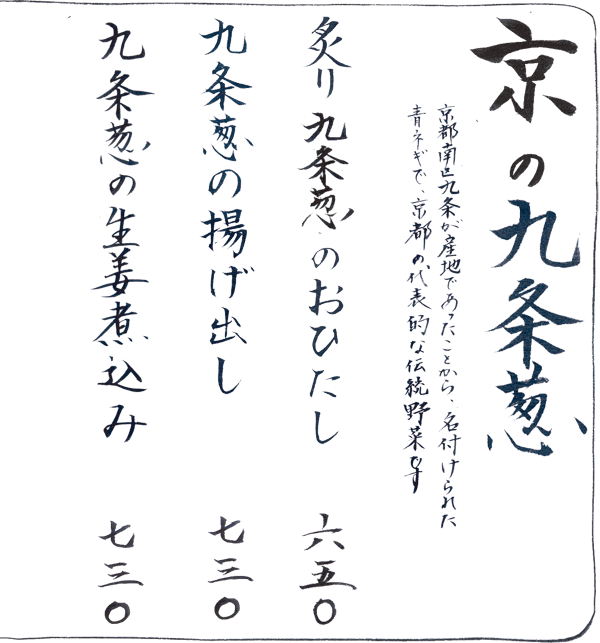 京の九条葱
京都南区九条が産地であったことから、名付けられた
青ネギで、京都の代表的な伝統野菜です
炙り九条葱のおひたし 六五〇
九条葱の揚げ出し 七三〇
九条葱の生姜煮込み 七三〇